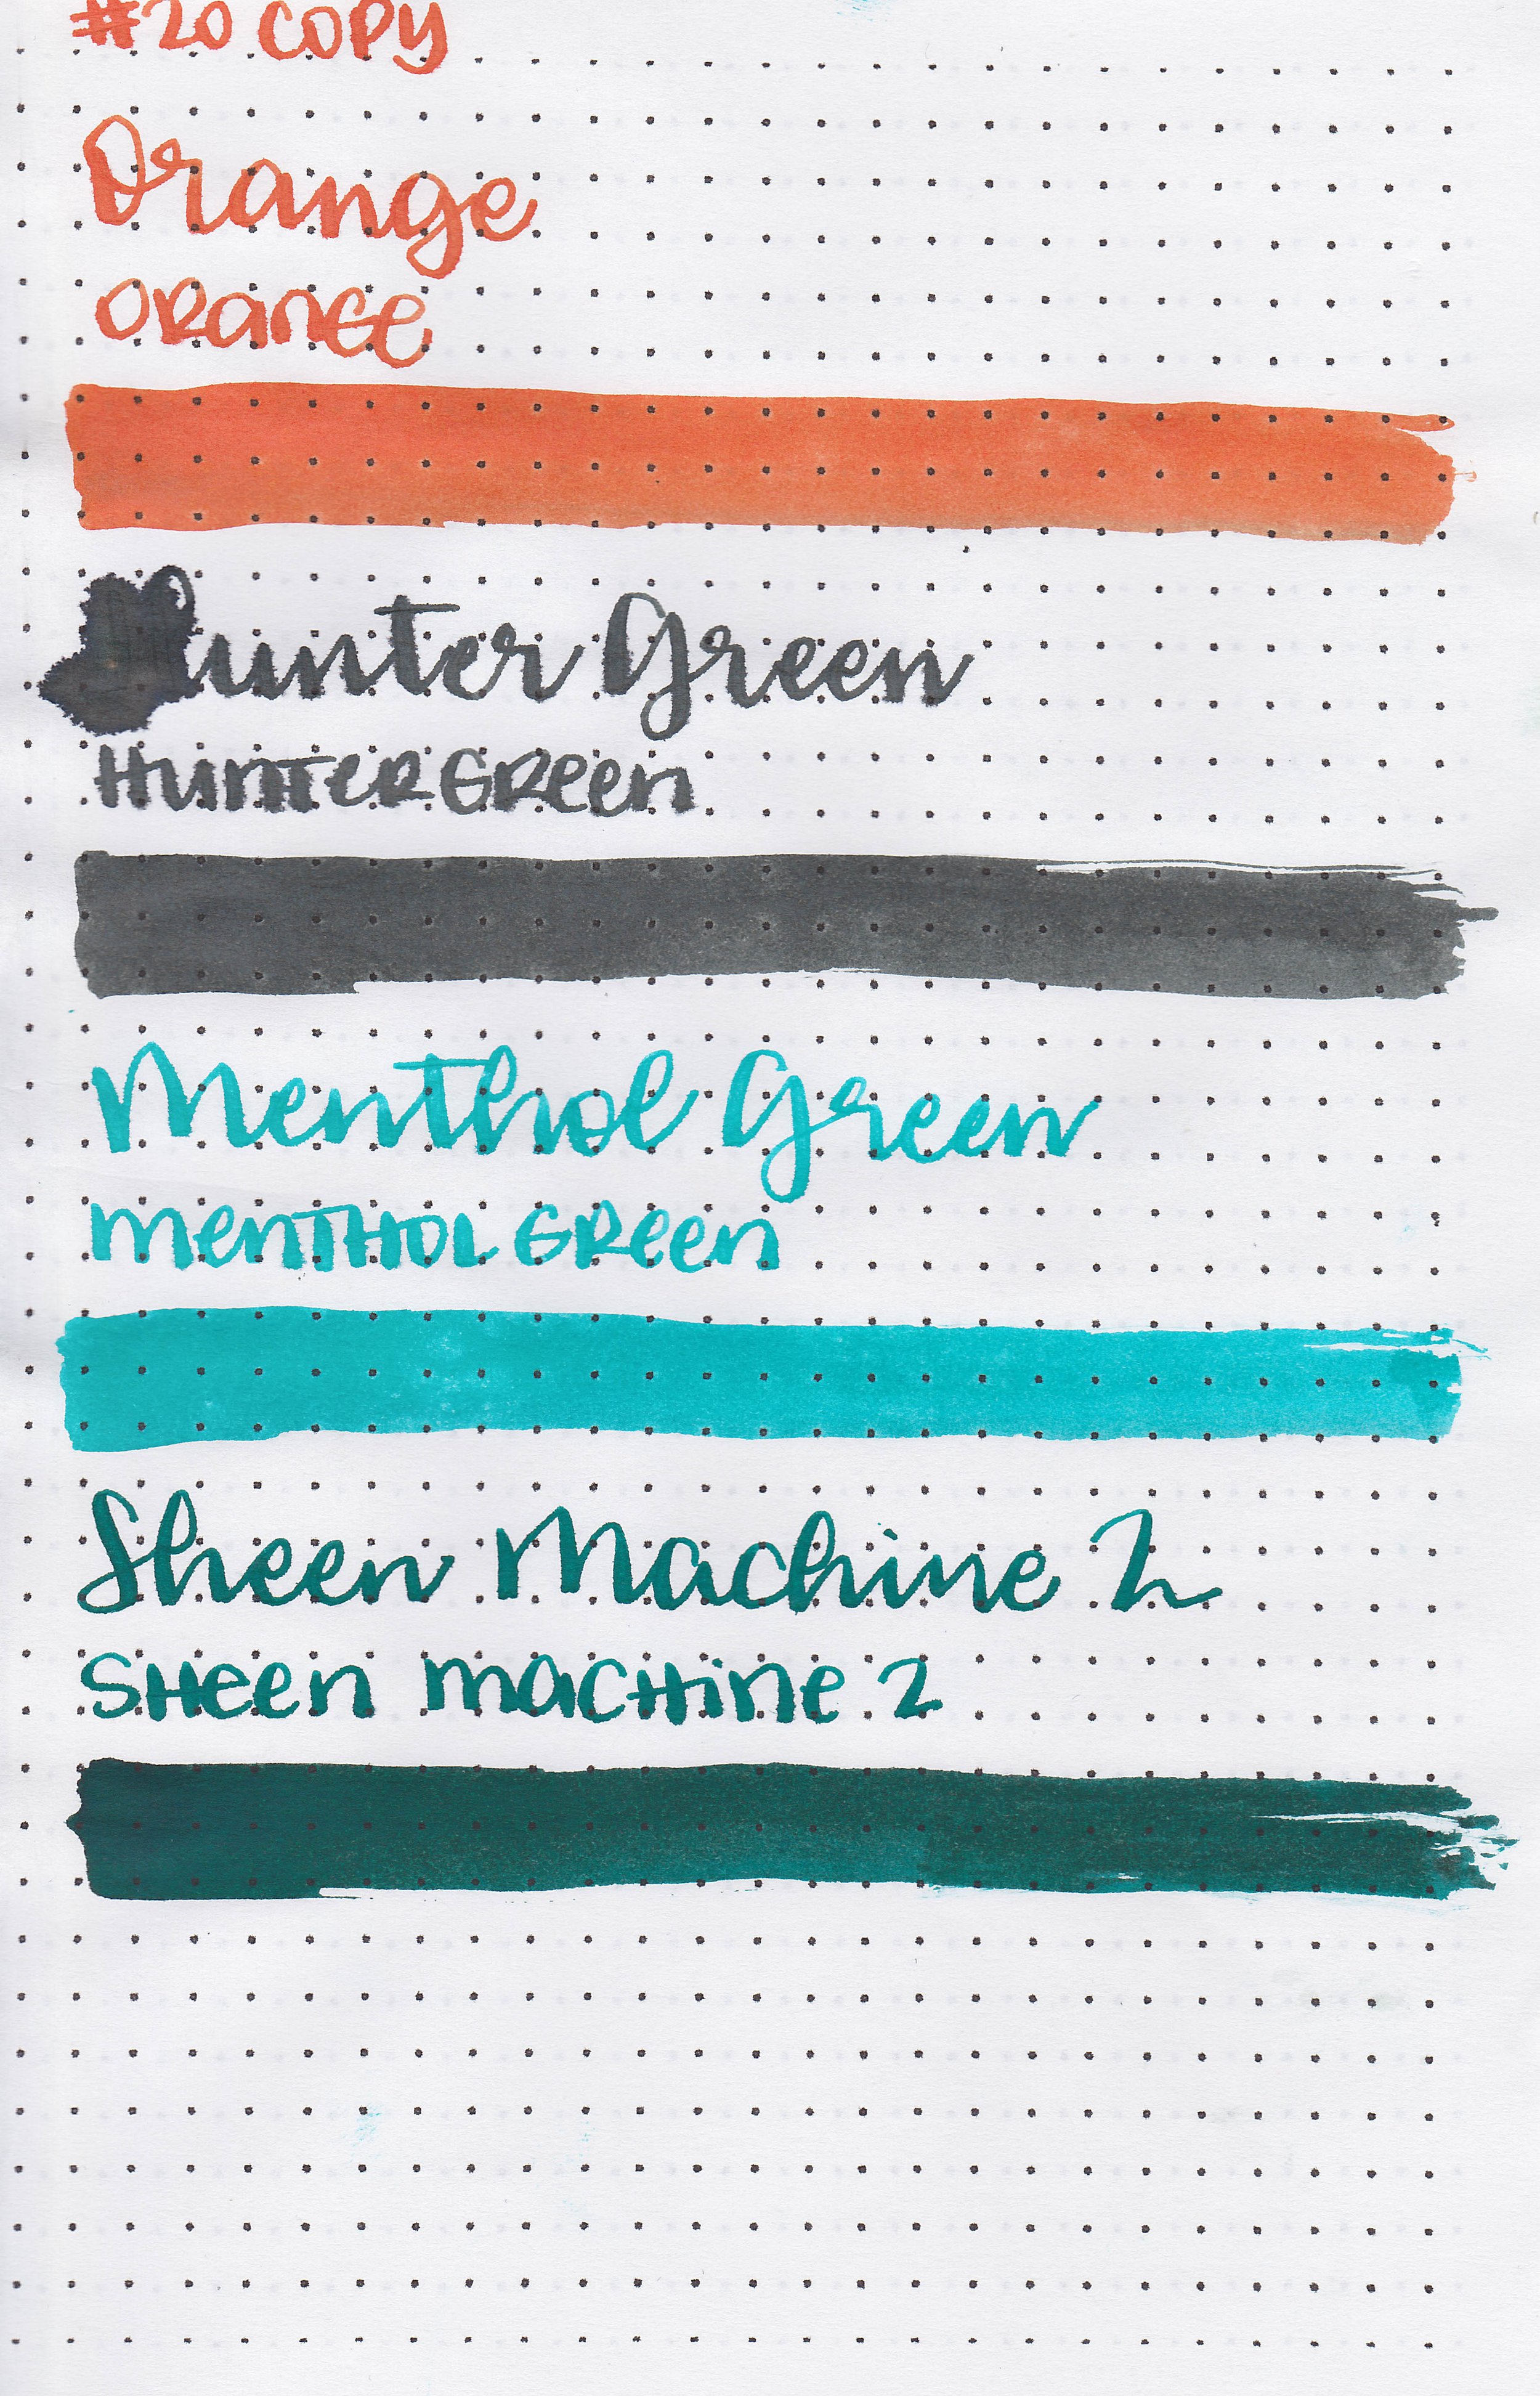 #20 COPY
Orange
ORANGE
Hunter Green
HUNTER GREEN
Menthol Green
MENTHOL GREEN
Sheen Machine 2
SHEEN MACHINE 2